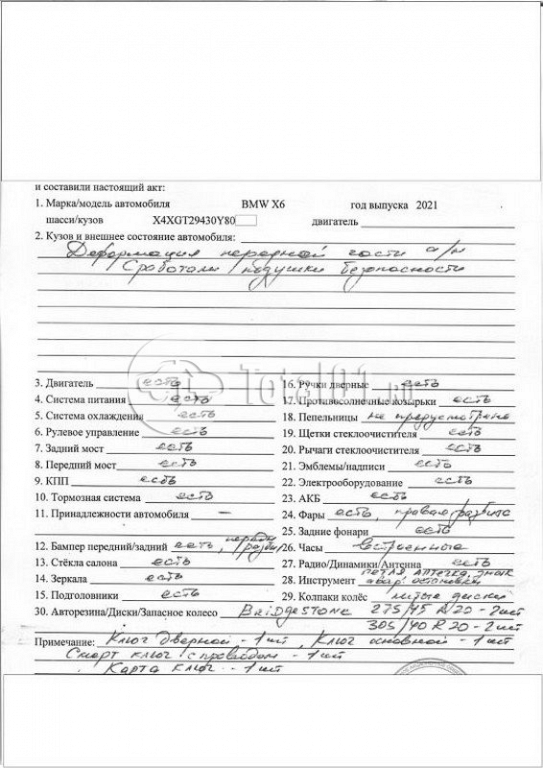 и составили настоящий акт:
1. Марка/модель автомобиля BMW X6 год выпуска 2021
шасси/кузов X4XGT29430Y80 двигатель
2. Кузов и внешнее состояние автомобиля:
Деформация передней части а/м
Сработали подушки безопасности
3. Двигатель есть 16. Ручки дверные есть
4. Система питания есть 17. Противосолнечные козырьки есть
5. Система охлаждения есть 18. Пепельницы не предусмотрена
6. Рулевое управление есть 19. Щетки стеклоочистителя есть
7. Задний мост есть 20. Рычаги стеклоочистителя есть
8. Передний мост есть 21. Эмблемы/надписи есть
9. КПП есть 22. Электрооборудование есть
10. Тормозная система есть 23. АКБ есть
11. Принадлежности автомобиля — 24. Фары есть, правая разбита
25. Задние фонари есть
12. Бампер передний/задний есть, 26. Часы встроенные
13. Стёкла салона есть 27. Радио/Динамики/Антенна есть
14. Зеркала есть 28. Инструмент петля, аптечка, знак авар. остановки
15. Подголовники есть 29. Колпаки колёс литые диски
30. Авторезина/Диски/Запасное колесо BRIDGESTONE 275/45 R20 - 2шт
305/40 R20 - 2шт
Примечание: Ключ дверной - 1шт, Ключ основной - 1шт
Смарт ключ с проводом - 1шт
Карта ключ - 1шт
Total01.ru